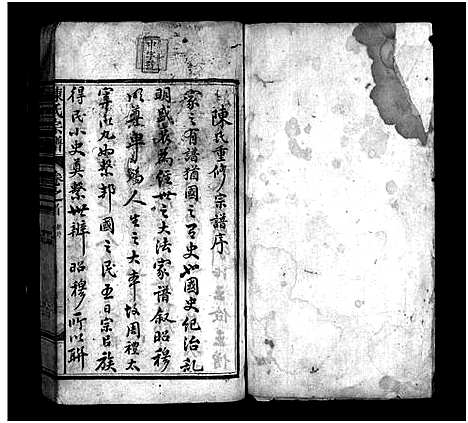 陳氏重修宗譜序
家之有譜猶國之有史也國史紀治亂
明盛衰為經世之大法家譜敘昭穆
以尊卑為人生之大本故周禮太
宰以九兩繫邦國之民五曰宗以族
得民小史奠繫世辨昭穆所以聯
陳氏宗譜